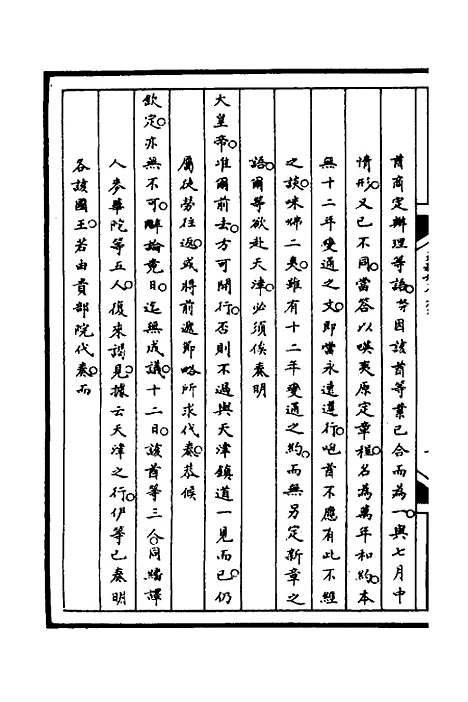 酋商定辦理等語。茅因該酋等業已合而為一。與七月中
情形又已不同。當答以㗸夷原定章程。名為萬年和約。本
無十二年變通之文。即當永遠遵行。咆酋不應有此不經
之談。咪㖠二夷雖有十二年變通之約。而無另定新章之
語。爾等欲赴天津。必須俟奏明
大皇帝。准爾前去。方可開行。否則不過與天津鎮道一見而已。仍
屬徒勞往返。或將前遞節略所求代奏。恭候
欽定。亦無不可。辯論竟日。迄無成議。十二日。該酋等三人同繙譯
人麥華陀等五人。復來謁見。據云天津之行。伊等已奏明
各該國王。若由貴部院代奏。而